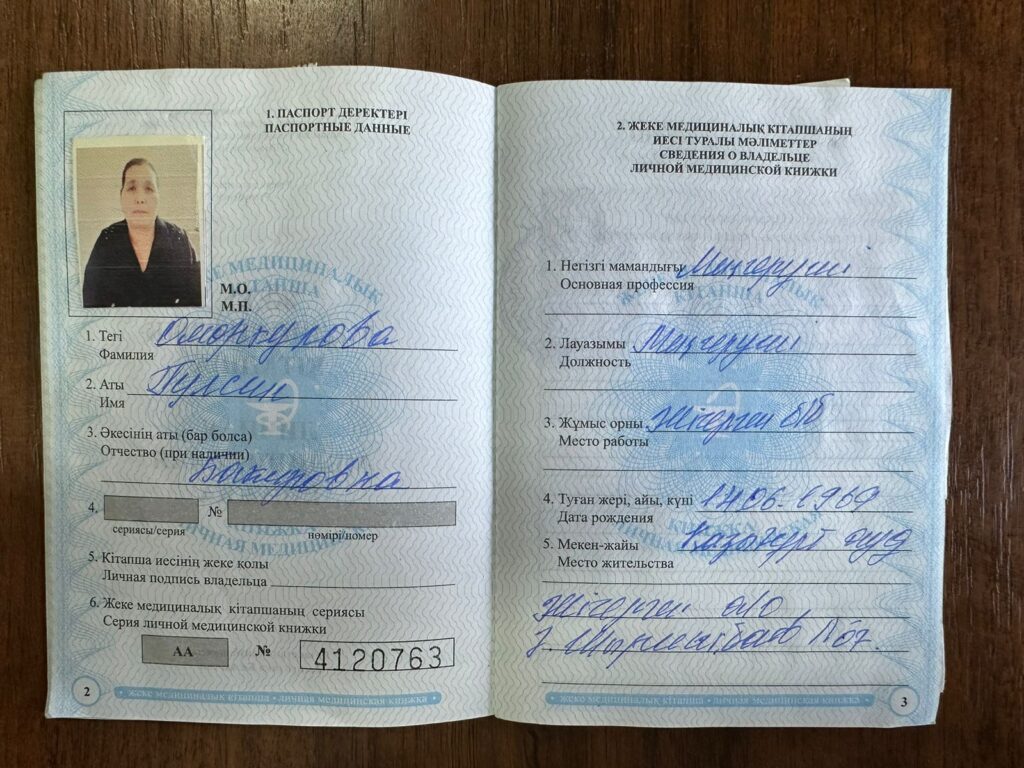 1. ПАСПОРТ ДЕРЕКТЕРІ
ПАСПОРТНЫЕ ДАННЫЕ
М.О.
М.П.
1. Тегі
Фамилия
Омонкулова
2. Аты
Имя
Гулсин
3. Әкесінің аты (бар болса)
Отчество (при наличии)
4.
№
сериясы/серия
нөмірі/номер
5. Кітапша иесінің жеке қолы
Личной подпись владельца
6. Жеке медициналық кітапшаның сериясы
Серия личной медицинской книжки
АА № 4120763
2
• ЖЕКЕ МЕДИЦИНАЛЫҚ КІТАПША • ЛИЧНАЯ МЕДИЦИНСКАЯ КНИЖКА •
2. ЖЕКЕ МЕДИЦИНАЛЫҚ КІТАПШАНЫҢ
ИЕСІ ТУРАЛЫ МӘЛІМЕТТЕР
СВЕДЕНИЯ О ВЛАДЕЛЬЦЕ
ЛИЧНОЙ МЕДИЦИНСКОЙ КНИЖКИ
1. Негізгі мамандығы Меңгеруші
Основная профессия
2. Лауазымы Меңгеруші
Должность
3. Жұмыс орны Жігерген
Место работы
4. Туған жері, айы, күні 17.06-1969
Дата рождения
5. Мекен-жайы Қазығұрт ауд
Место жительства
Жігерген а/о
• ЖЕКЕ МЕДИЦИНАЛЫҚ КІТАПША • ЛИЧНАЯ МЕДИЦИНСКАЯ КНИЖКА •
3